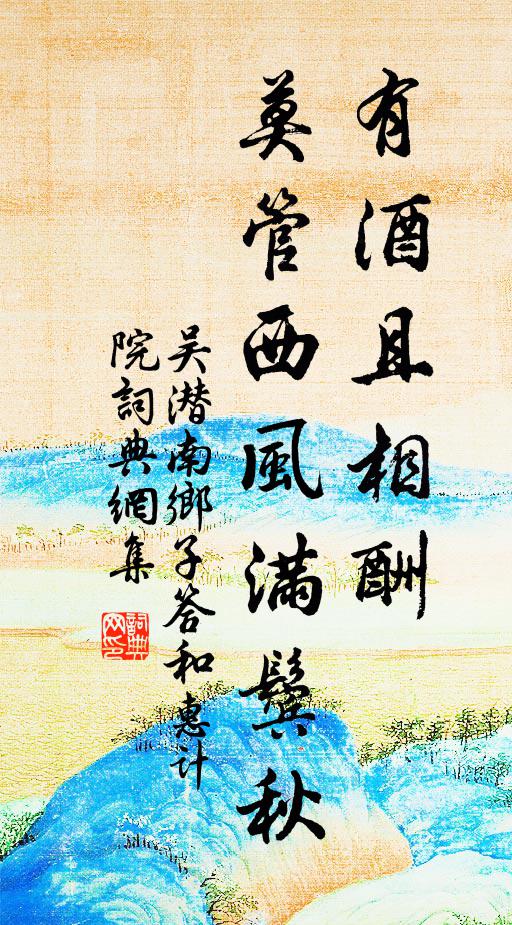 有酒且相酬
莫管西風滿鬢秋
吴潜南鄉子答和惠计
院詞典網集
詞典
网印